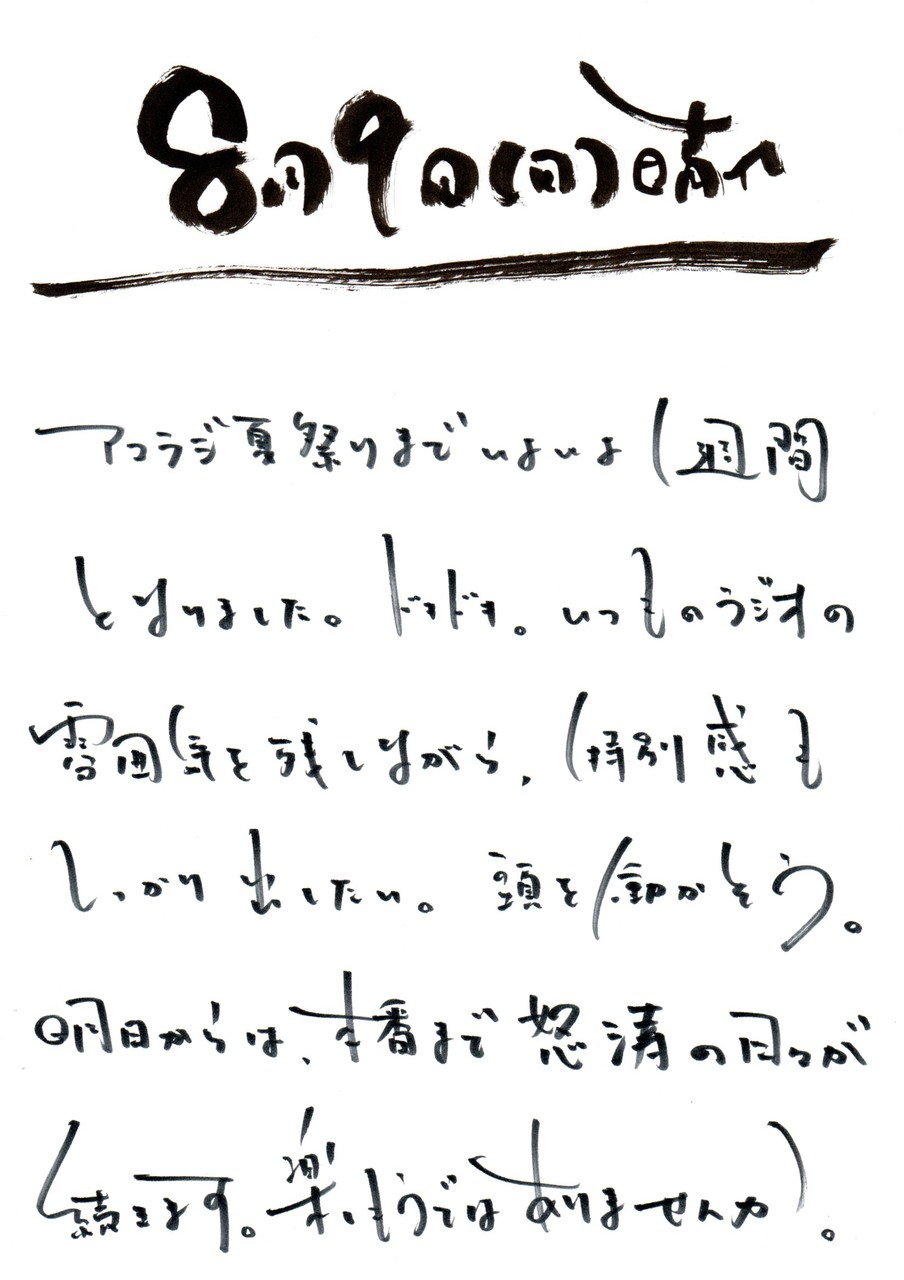 8月9日(日)晴れ
アコラジ夏祭りまでいよいよ1週間
となりました。ドキドキ。いつものラジオの
雰囲気を残しながら、特別感も
しっかり出したい。頭を働かそう。
明日からは、本番まで怒涛の日々が
続きます。楽しもうではありませんか。